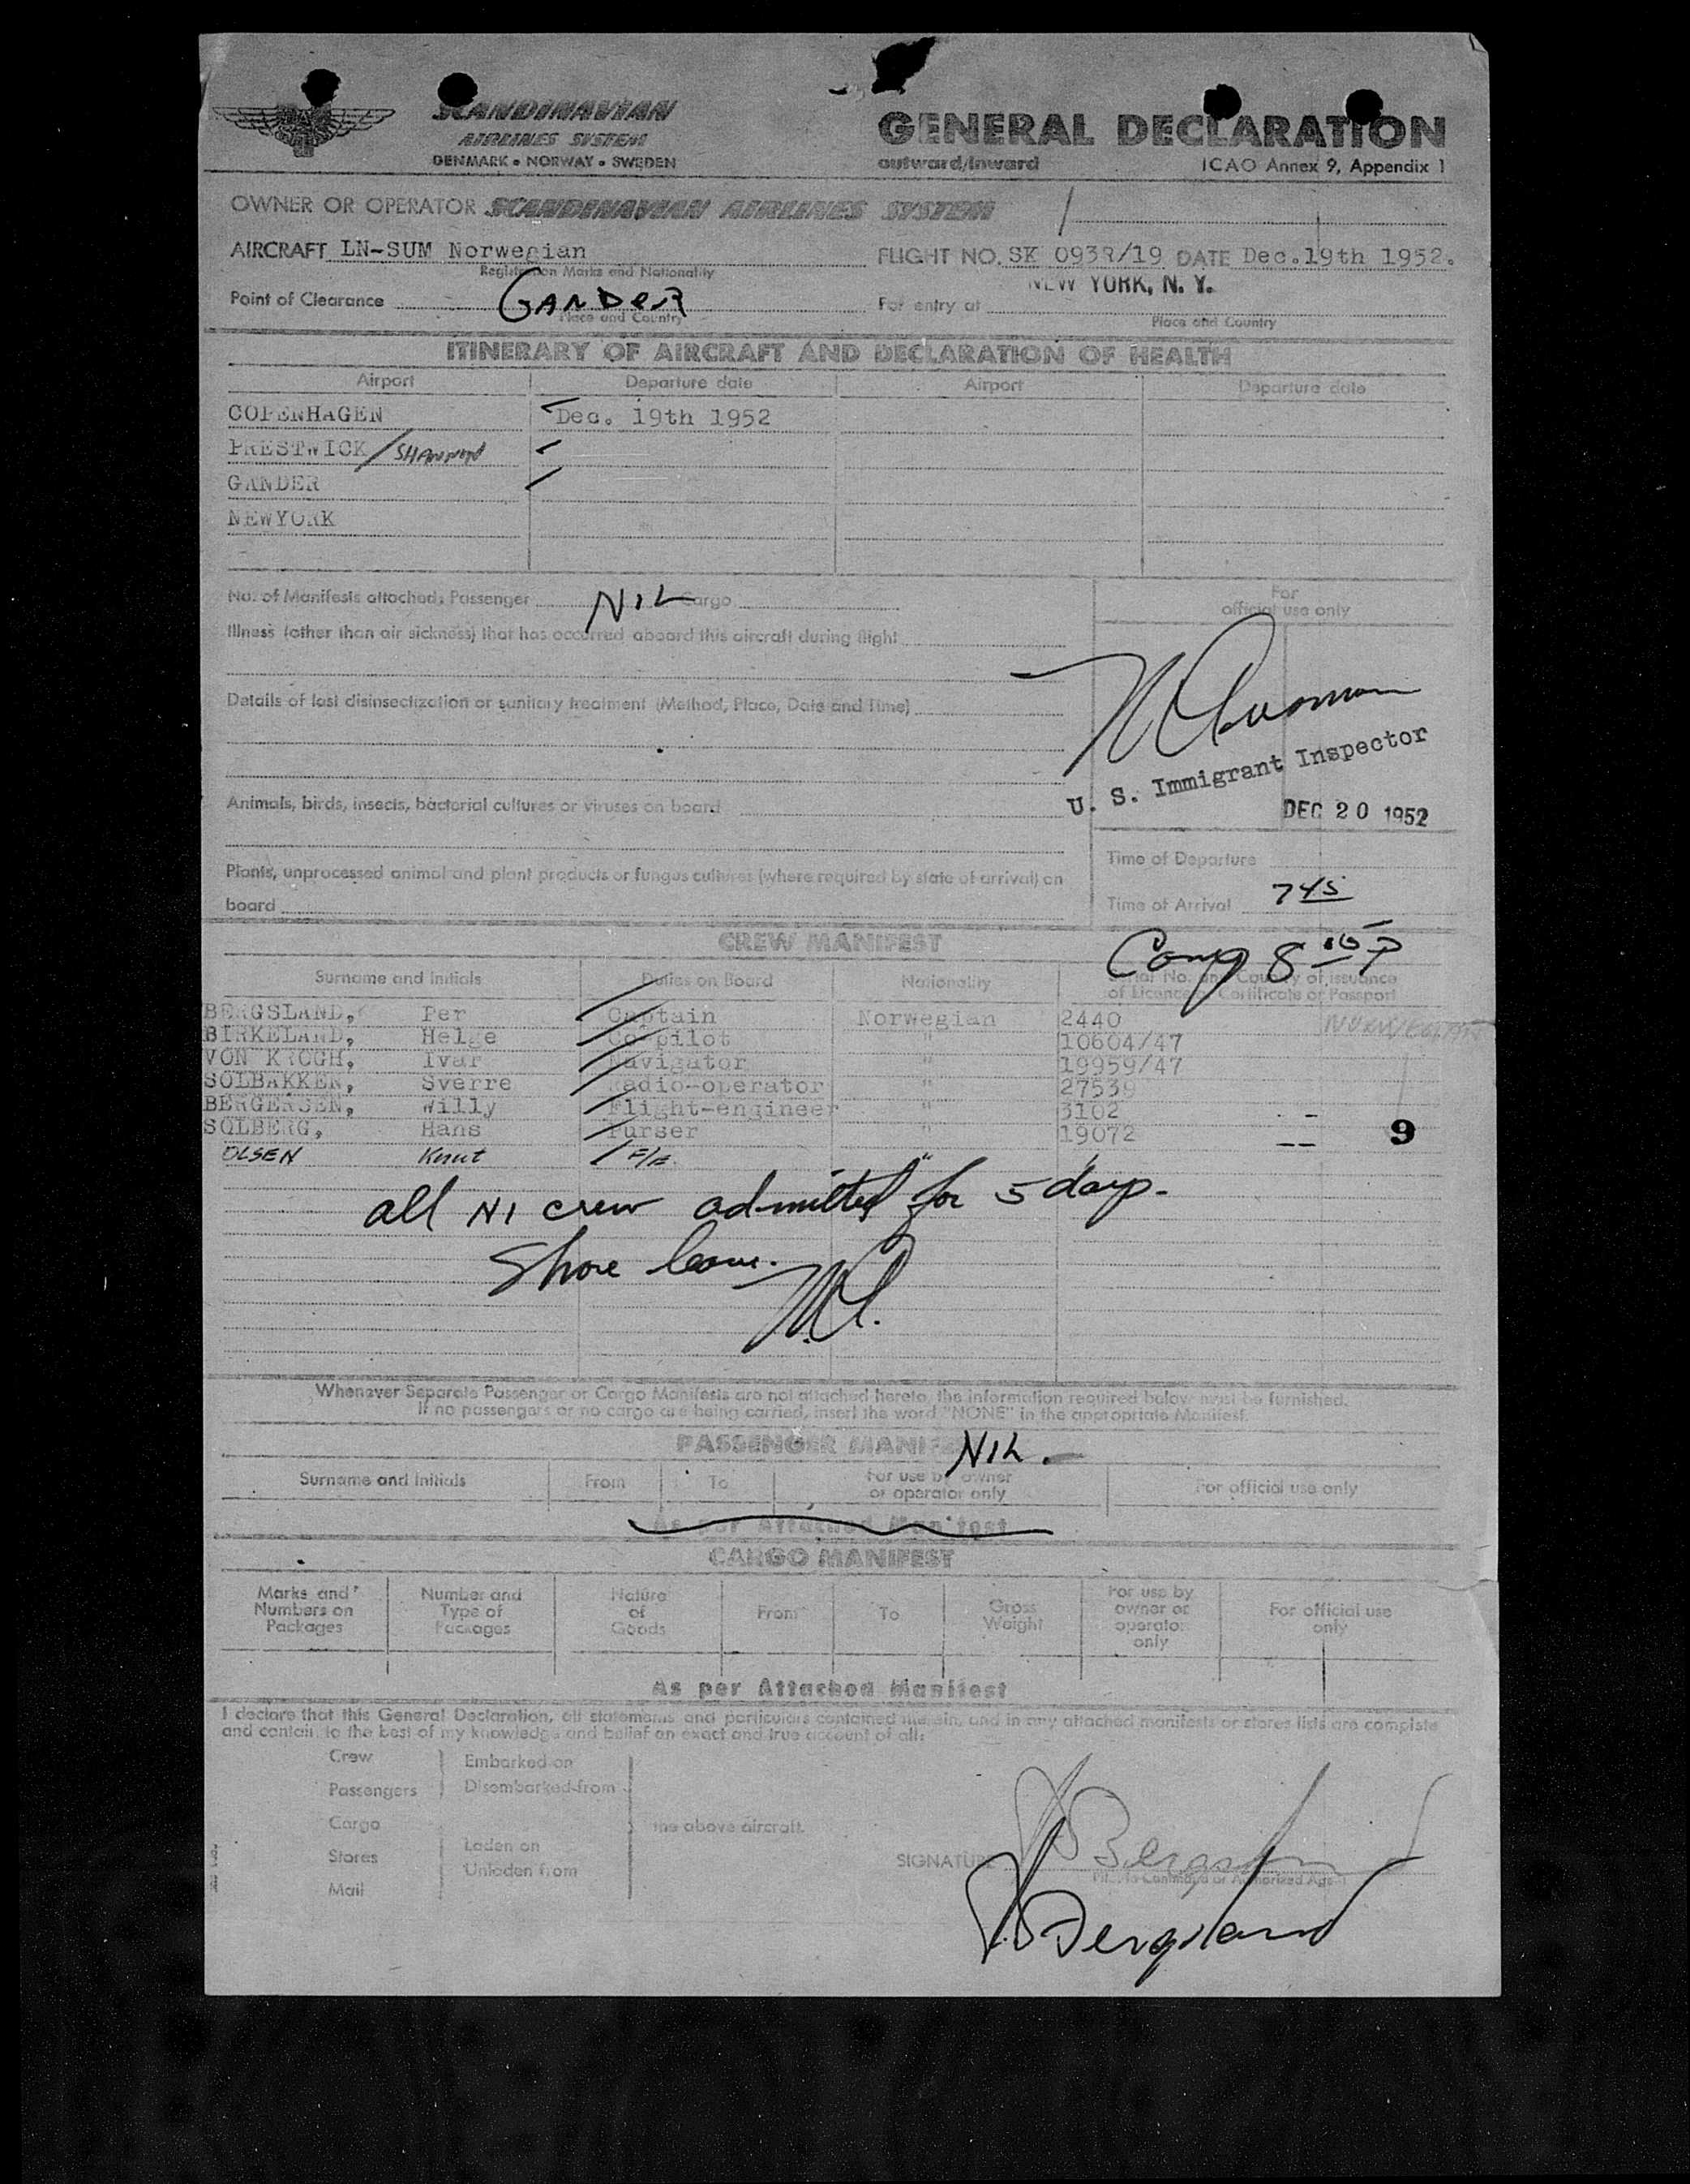 SCANDINAVIAN
AIRLINES SYSTEM
DENMARK • NORWAY • SWEDEN
GENERAL DECLARATION
outward/inward
ICAO Annex 9, Appendix 1
OWNER OR OPERATOR SCANDINAVIAN AIRLINES SYSTEM
AIRCRAFT LN-SUM Norwegian
Registration Marks and Nationality
FLIGHT NO. SK 0939/19 DATE Dec.19th 1952.
Point of Clearance GANDER
Place and Country
For entry at NEW YORK, N. Y.
Place and Country
ITINERARY OF AIRCRAFT AND DECLARATION OF HEALTH
Airport Departure date Airport Departure date
COPENHAGEN Dec. 19th 1952
PRESTWICK / SHANNON
GANDER
NEWYORK
No. of Manifests attached: Passenger NIL Cargo
For
official use only
Illness (other than air sickness) that has occurred aboard this aircraft during flight
Details of last disinsectization or sanitary treatment (Method, Place, Date and Time)
U. S. Immigrant Inspector
DEC 20 1952
Animals, birds, insects, bacterial cultures or viruses on board
Time of Departure
Plants, unprocessed animal and plant products or fungus cultures (where required by state of arrival) on
board
Time of Arrival 745
CREW MANIFEST
Comp 8 15 P
Surname and Initials Duties on Board Nationality Serial No. and Country of issuance
of Licence or Certificate or Passport
BERGSLAND, Per Captain Norwegian 2440 NORWEGIAN
BIRKELAND, Helge Co-pilot " 10604/47
VON KROGH, Ivar Navigator " 19959/47
SOLBAKKEN, Sverre Radio-operator " 27539
BERGERSEN, Willy Flight-engineer " 3102 - -
SOLBERG, Hans Purser " 19072 - - 9
OLSEN Knut F/E. "
all NI crew admitted for 5 days.
Shore leave.
Whenever Separate Passenger or Cargo Manifests are not attached hereto, the information required below must be furnished.
If no passengers or no cargo are being carried, insert the word "NONE" in the appropriate Manifest.
PASSENGER MANIFEST NIL.
Surname and Initials From To For use by owner
or operator only For official use only
As per Attached Manifest
CARGO MANIFEST
Marks and
Numbers on
Packages
Number and
Type of
Packages
Nature
of
Goods
From
To
Gross
Weight
For use by
owner or
operator
only
For official use
only
As per Attached Manifest
I declare that this General Declaration, all statements and particulars contained therein, and in any attached manifests or stores lists are complete
and contain to the best of my knowledge and belief an exact and true account of all:
Crew
Passengers
Embarked on
Disembarked from
Cargo
Stores
Mail
Laden on
Unladen from
the above aircraft.
SIGNATURE Bergsland
Pilot in Command or Authorized Agent
Bergsland